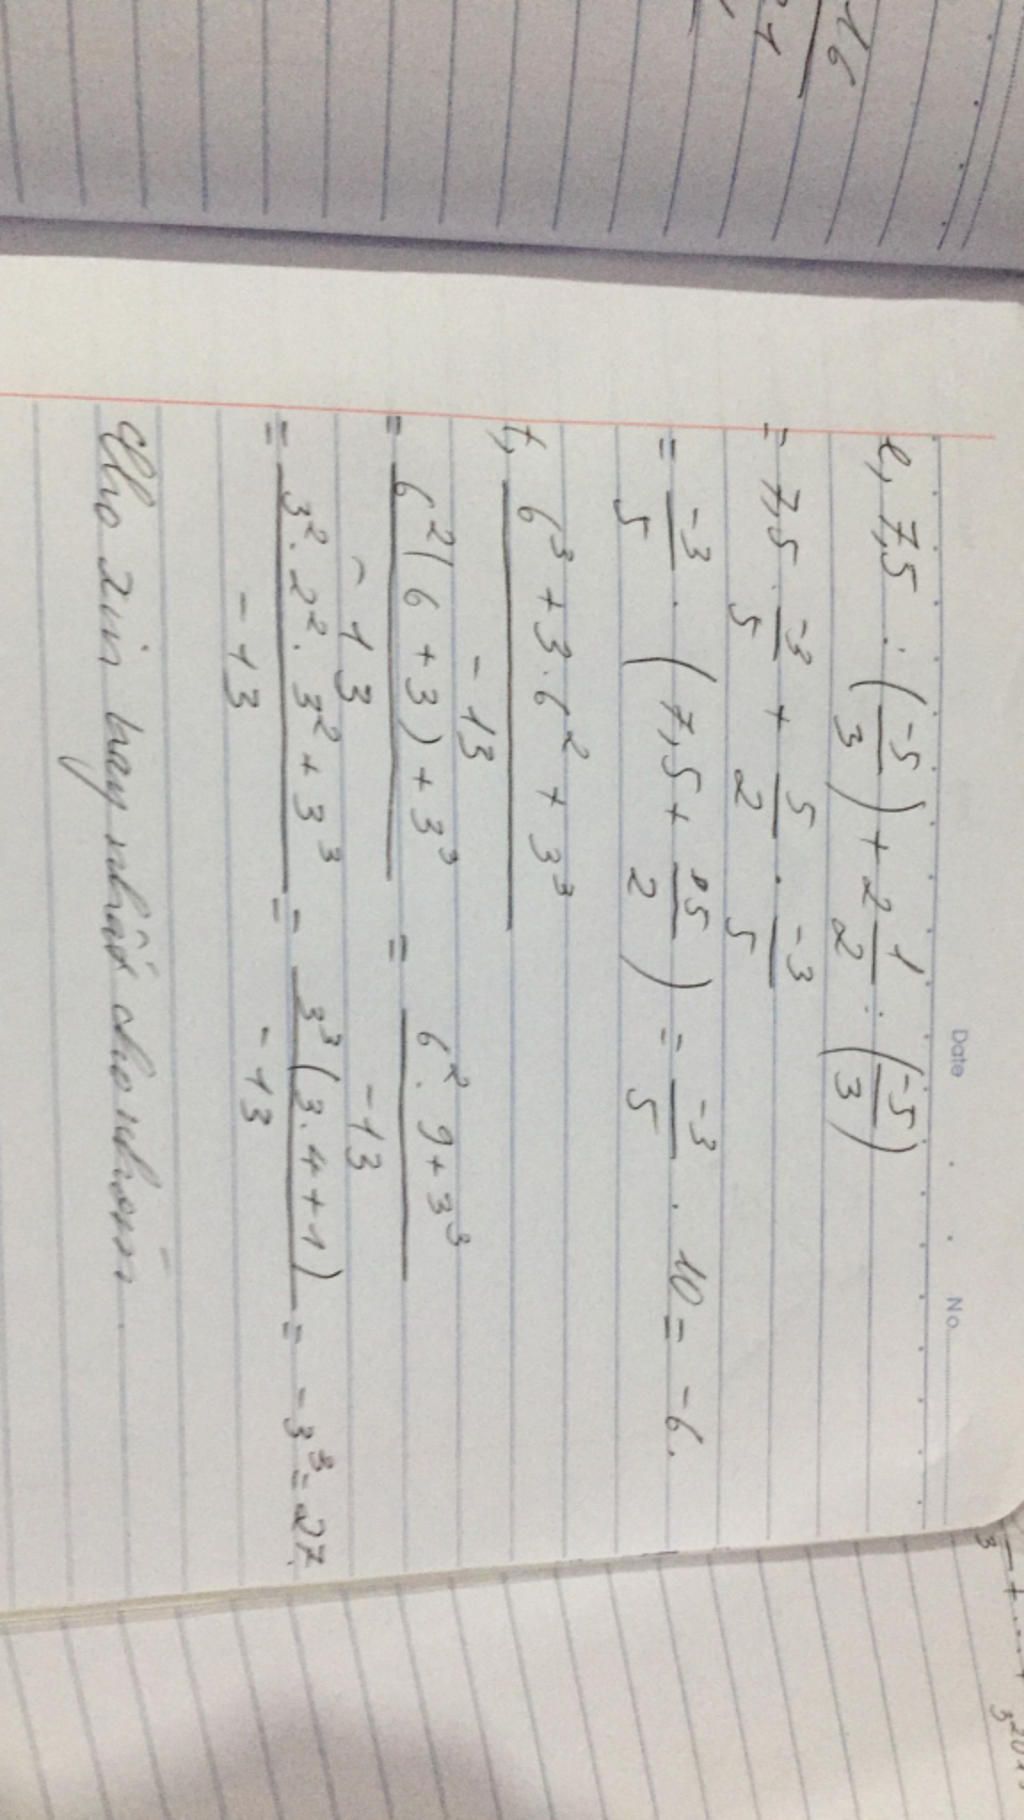 Date No.
e, 7,5 : (-5/3) + 2 1/2 : (-5/3)
= 7,5 . -3/5 + 5/2 . -3/5
= -3/5 . (7,5 + 5/2) = -3/5 . 10 = -6.
f, 6³ + 3.6² + 3³ / -13
= 6²(6 + 3) + 3³ / -13 = 6² . 9 + 3³ / -13
= 3² . 2² . 3² + 3³ / -13 = 3³(3.4+1) / -13 = -3³ = 27.
Cho xin hay nhất cho nhóm
16
21